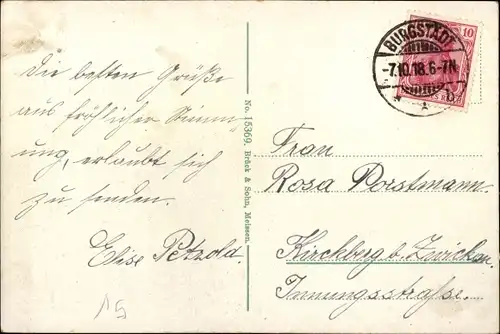 Die besten Grüße
aus fröhlicher Stimm-
ung, erlaubt sich
zu senden.
Elise Petzold.
15
No. 15369, Brück & Sohn, Meissen.
BURGSTÄDT
-7.10.18.6-7N.
* b
10
Frau
Rosa Porstmann.
Kirchberg b. Zwickau.
Innungsstraße.